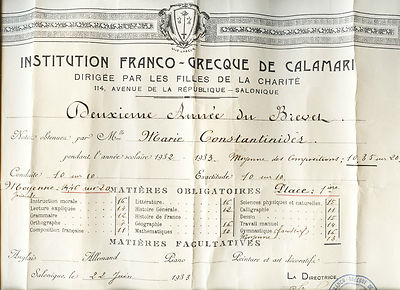 INSTITUTION FRANCO-GRECQUE DE CALAMARI
DIRIGÉE PAR LES FILLES DE LA CHARITÉ
114, AVENUE DE LA RÉPUBLIQUE - SALONIQUE
Deuxième Année du Brevet
Notes obtenues par Melle Marie Constantinidès
pendant l'année scolaire 1932 - 1933 Moyenne des Compositions: 10,35 sur 20
Conduite 10 sur 10 Exactitude 10 sur 10
Moyenne: sur 20 MATIÈRES OBLIGATOIRES Place: 1ère
Instruction morale 16 Littérature 16 Sciences physiques et naturelles 15
Lecture expliquée 14 Histoire Générale 12 Calligraphie 11
Grammaire 16 Histoire de France Dessin 15
Orthographe Géographie 11 Travail manuel 14
Composition française 11 Mathématiques 10 Gymnastique
Moyenne 13
MATIÈRES FACULTATIVES
Anglais Allemand Piano Peinture et art décoratif
Salonique, le 22 Juin 1933 LA DIRECTRICE